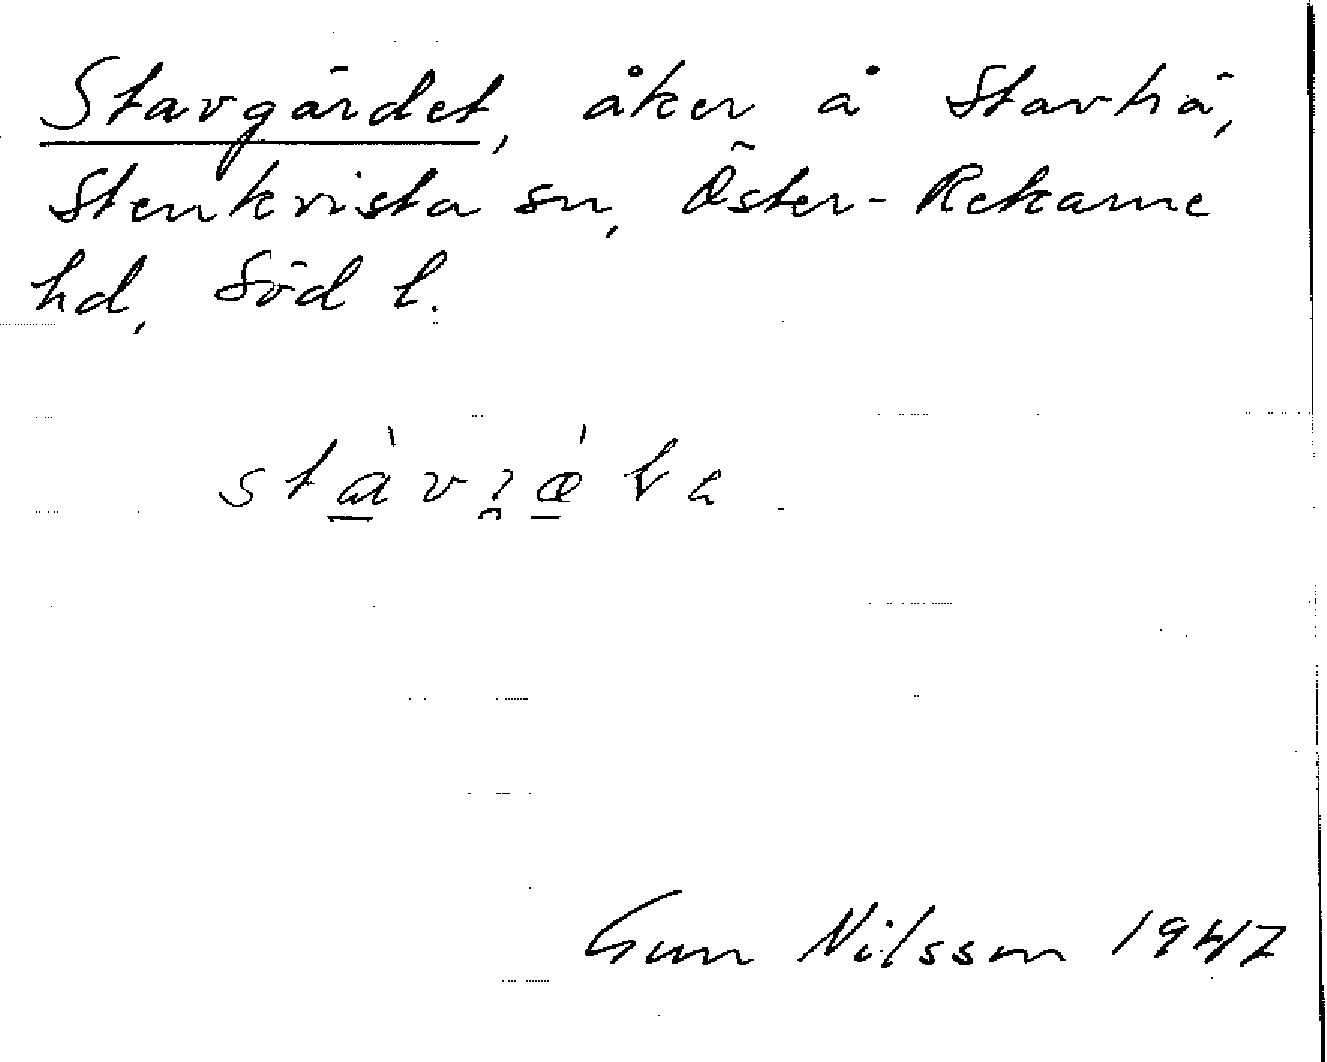 Stavgärdet, åker å Stavhä,
Stenkvista sn, Öster-Rekarne
hd, Söd l.
Gun Nilsson 1947